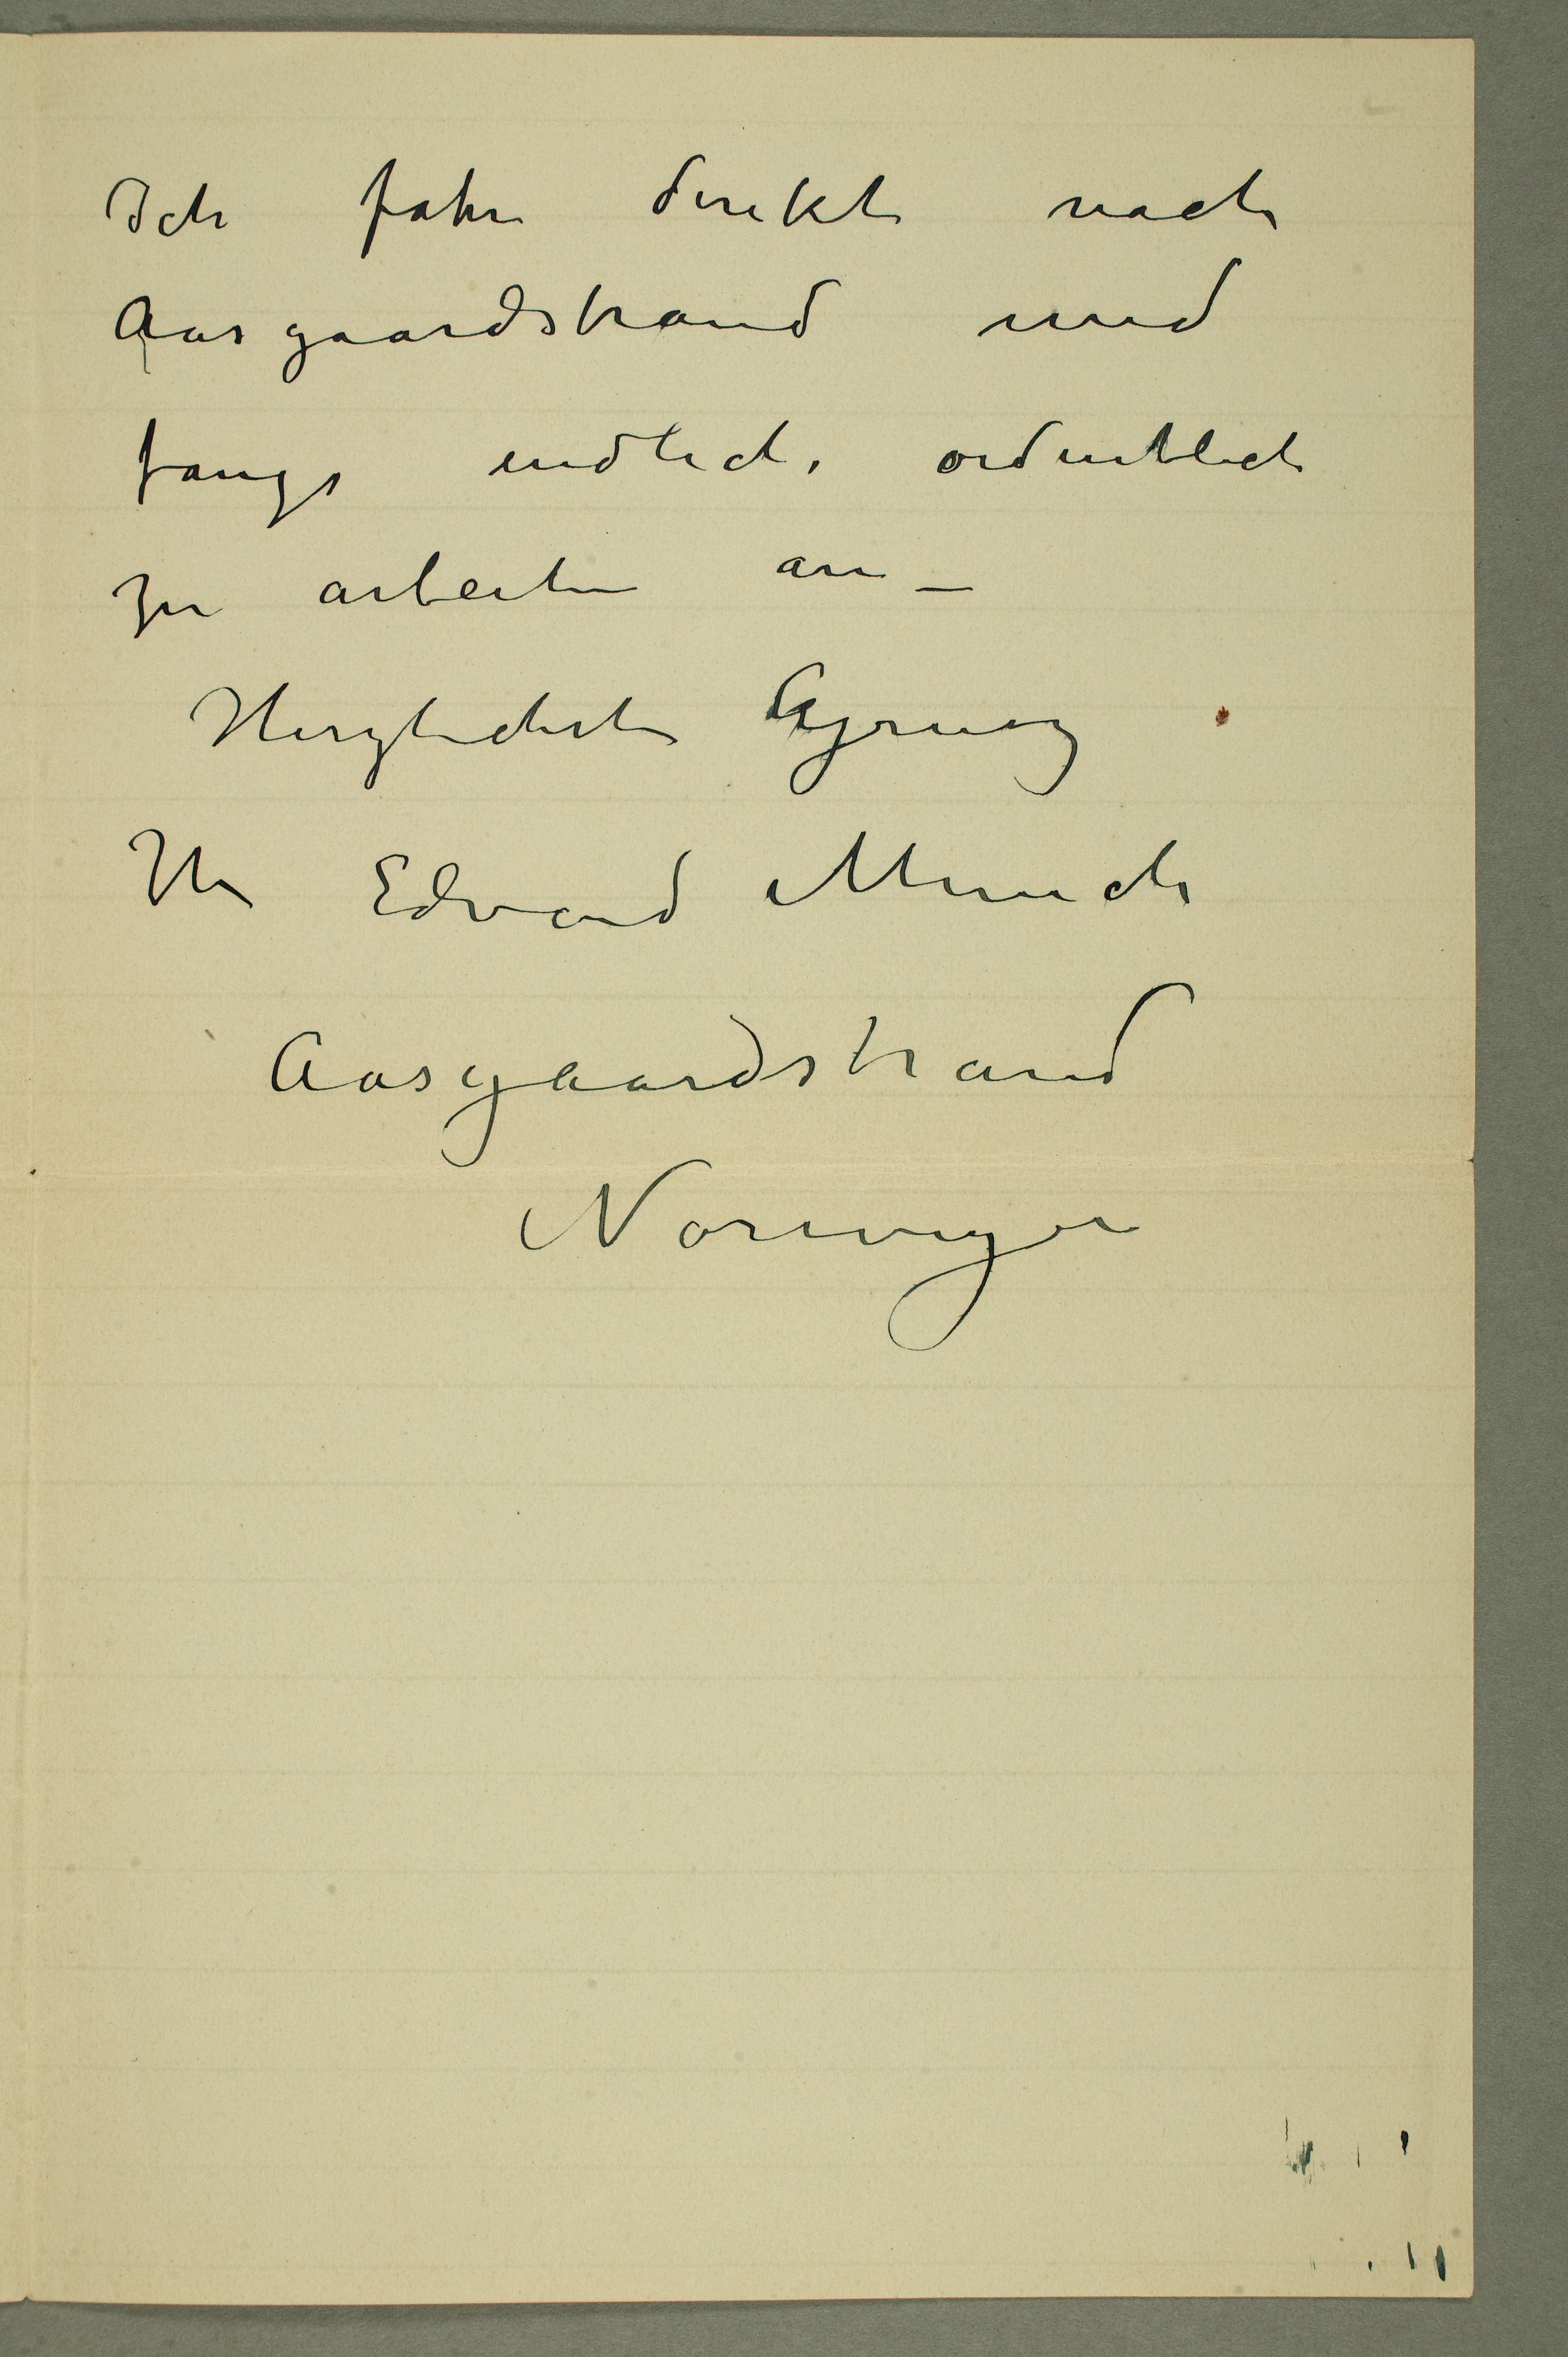 Ich fahre direkt nach
Aasgaardstrand und
fange endlich ordentlich
zu arbeiten an –
Herzlichste Gruss
Ihr Edvard Munch
Aasgaardstrand
Norwegen